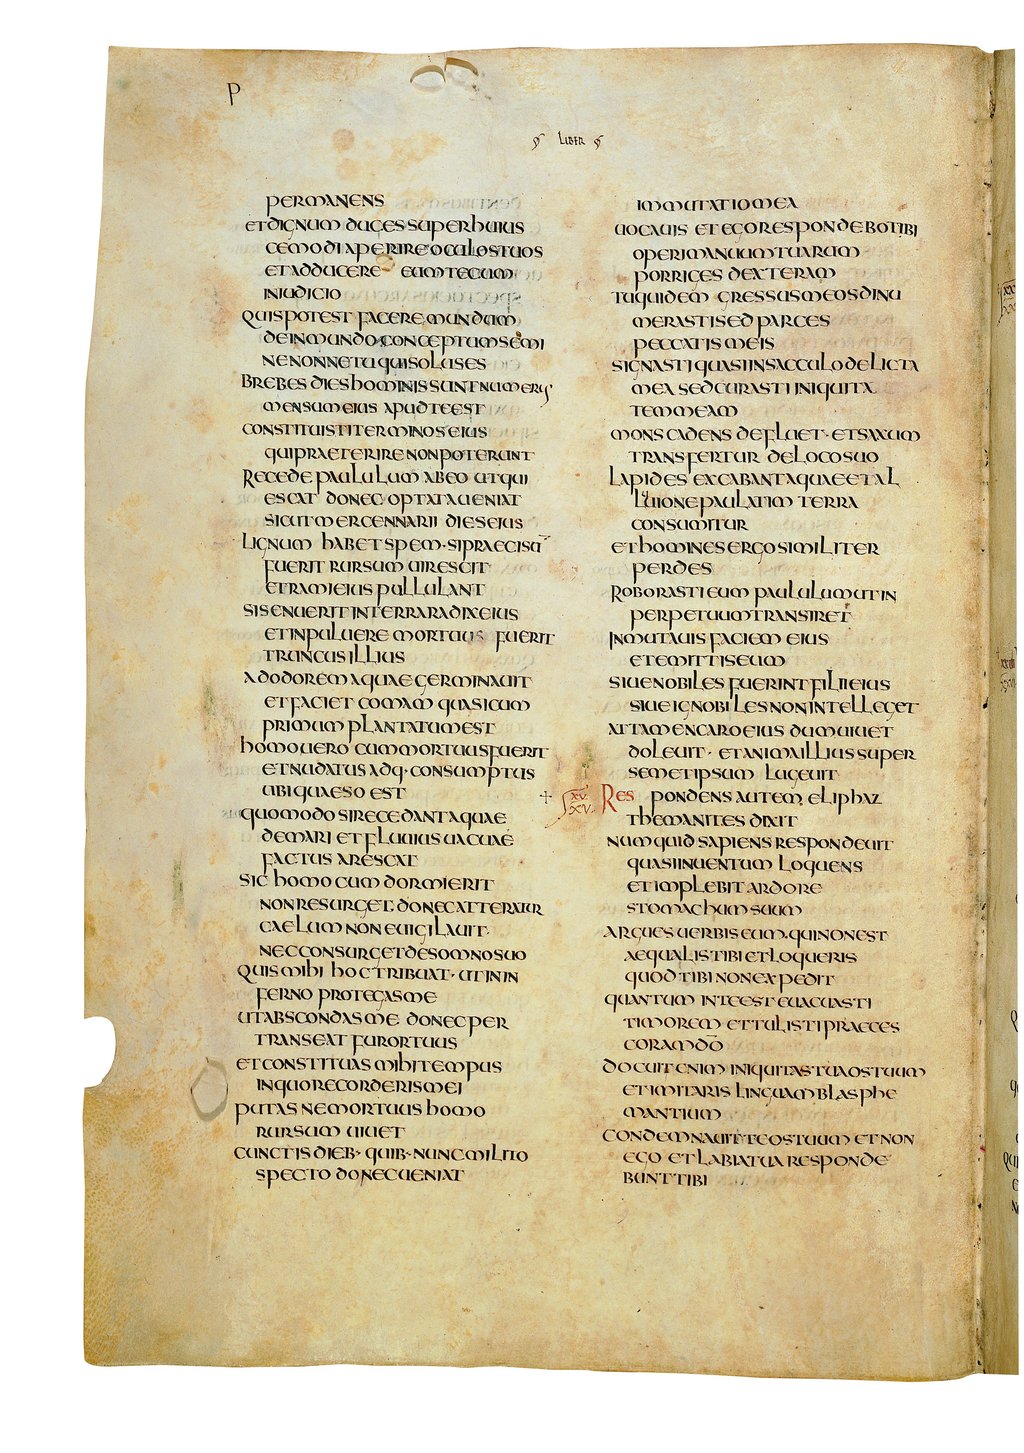 P
LIBER
PERMANENS
ET DIGNUM DUCES SUPER HUIUS
CEMODI APERIRE OCULOS TUOS
ET ADDUCERE EUM TECUM
IN IUDICIO
QUIS POTEST FACERE MUNDUM
DE INMUNDO CONCEPTUM SEMI
NE NONNE TU QUI SOLUS ES
BREBES DIES HOMINIS SUNT NUMERUS
MENSUM EIUS APUD TE EST
CONSTITUISTI TERMINOS EIUS
QUI PRAETERIRE NON POTERUNT
RECEDE PAULULUM AB EO UT QUI
ESCAT DONEC OPTATA UENIAT
SICUT MERCENNARII DIES EIUS
LIGNUM HABET SPEM · SI PRAECISŪ
FUERIT RURSUM UIRESCIT
ET RAMI EIUS PULLULANT
SI SENUERIT IN TERRA RADIX EIUS
ET IN PULUERE MORTUUS FUERIT
TRUNCUS ILLIUS
AD ODOREM AQUAE GERMINAUIT
ET FACIET COMAM QUASI CUM
PRIMUM PLANTATUM EST
HOMO UERO CUM MORTUUS FUERIT
ET NUDATUS ADQ · CONSUMPTUS
UBI QUAESO EST
QUOMODO SI RECEDANT AQUAE
DE MARI ET FLUUIUS UACUAE
FACTUS ARESCAT
SIC HOMO CUM DORMIERIT
NON RESURGET · DONEC ATTERATUR
CAELUM NON EUIGILAUIT ·
NEC CONSURGET DE SOMNO SUO
QUIS MIHI HOC TRIBUAT · UT IN IN
FERNO PROTEGAS ME
UT ABSCONDAS ME DONEC PER
TRANSEAT FUROR TUUS
ET CONSTITUAS MIHI TEMPUS
IN QUO RECORDERIS MEI
PUTAS NE MORTUUS HOMO
RURSUM UIUET
CUNCTIS DIEB · QUIB · NUNC MILITO
SPECTO DONEC UENIAT
IMMUTATIO MEA
UOCAUIS ET EGO RESPONDEBO TIBI
OPERI MANUUM TUARUM
PORRIGES DEXTERAM
TU QUIDEM GRESSUS MEOS DINU
MERASTI SED PARCES
PECCATIS MEIS
SIGNASTI QUASI IN SACCULO DELICTA
MEA SED CURASTI INIQUITA
TEM MEAM
MONS CADENS DEFLUET · ET SAXUM
TRANSFERTUR DE LOCO SUO
LAPIDES EXCABANT AQUAE ET AL
LUUIONE PAULATIM TERRA
CONSUMITUR
ET HOMINES ERGO SIMILITER
PERDES
ROBORASTI EUM PAULULUM UT IN
PERPETUUM TRANSIRET
INMUTAUIS FACIEM EIUS
ET EMITTIS EUM
SIUE NOBILES FUERINT FILII EIUS
SIUE IGNOBILES NON INTELLEGET
ATTAMEN CARO EIUS DUM UIUET
DOLEUIT · ET ANIMA ILLIUS SUPER
SEMETIPSUM LUGEUIT
XV RES PONDENS AUTEM ELIPHAZ
XV THEMANITES DIXIT
NUMQUID SAPIENS RESPONDEUIT
QUASI IN UENTUM LOQUENS
ET IMPLEBIT ARDORE
STOMACHUM SUUM
ARGUES UERBIS EUM · QUI NON EST
AEQUALIS TIBI ET LOQUERIS
QUOD TIBI NON EXPEDIT
QUANTUM IN TE EST EUACUASTI
TIMOREM ET TULISTI PRAECES
CORAM DŌ
DOCUIT ENIM INIQUITAS TUA OS TUUM
ET IMITARIS LINGUAM BLASPHE
MANTIUM
CONDEMNAUIT TE OS TUUM ET NON
EGO ET LABIA TUA RESPONDE
BUNT TIBI